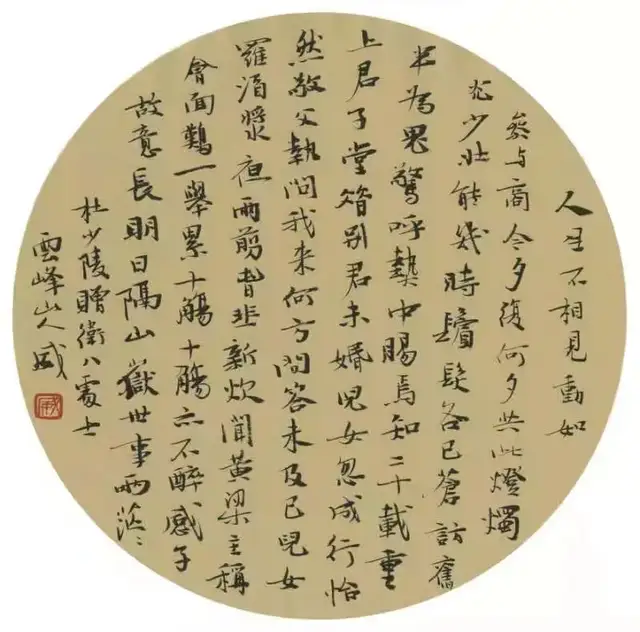 人生不相見動如
參与商今夕復何夕共此燈燭
光少壯能幾時鬢髮各已蒼訪舊
半為鬼驚呼熱中腸焉知二十載重
上君子堂昔別君未婚兒女忽成行怡
然敬父執問我来何方問答未及已兒女
羅酒漿夜雨剪春韭新炊聞黃梁主稱
會面難一舉累十觴十觴亦不醉感子
故意長明日隔山嶽世事兩茫〻
杜少陵贈衛八處士
雲峰山人威